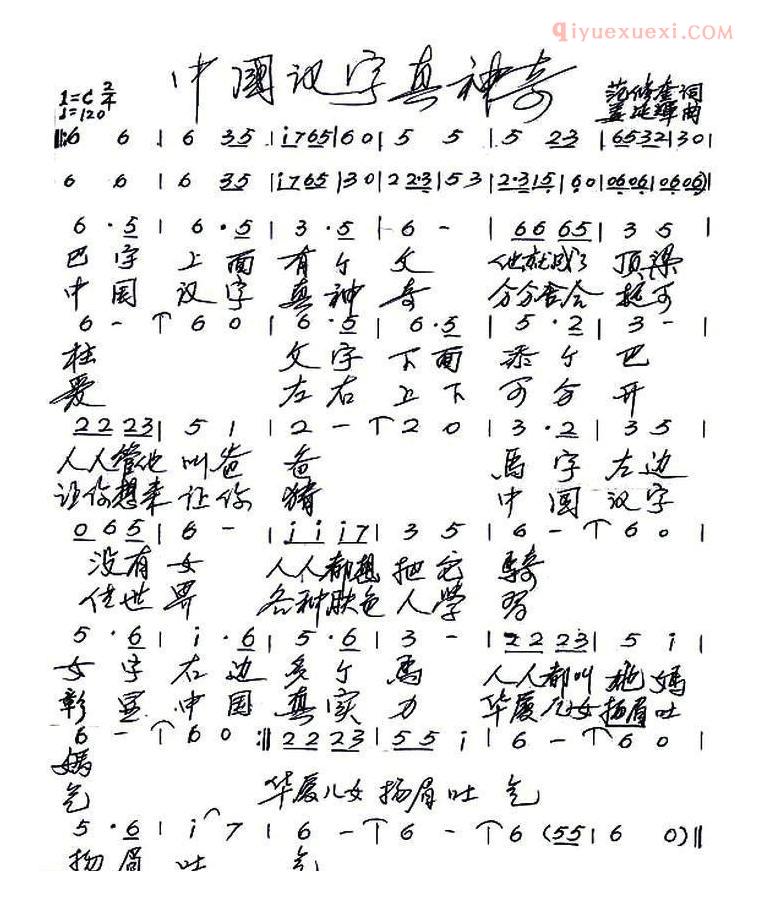 qiyuexuexi.com
中國汉字真神奇
1=C 2/4
♩=120
范修奎 词
孟延辉 曲
‖: 6 6 | 6 35 | i765 | 60 | 5 5 | 5 23 | 6532 | 30 |
6 6 | 6 35 | i765 | 30 | 22·3 | 53 | 2·315 | 60 | 0606 | 0606 ‖
6·5 | 6·5 | 3·5 | 6 - | 66 65 | 3 5 |
巴字上面有个父 他就成了顶梁
中国汉字真神奇 分分合合挺可
6 - | 6 0 | 6·5 | 6·5 | 5·2 | 3 - |
柱 父字下面添个巴
爱 左右上下可分开
22 23 | 5 1 | 2 - | 2 0 | 3·2 | 3 5 |
人人管他叫爸爸 馬字左边
让你想来让你猜 中国汉字
0 6 5 | 6 - | i i i7 | 3 5 | 6 - | 6 0 |
没有女 人人都想把它騎
传世界 各种肤色人学習
5·6 | i·6 | 5·6 | 3 - | 22 23 | 5 i |
女字右边多个馬 人人都叫她媽
彰显中国真实力 华厦儿女扬眉吐
6 - | 6 0 :‖ 22 23 | 55 i | 6 - | 6 0 |
媽
气 华厦儿女扬眉吐气
5·6 | i 7 | 6 - | 6 - | 6 (55 | 6 0) ‖
扬眉吐 气